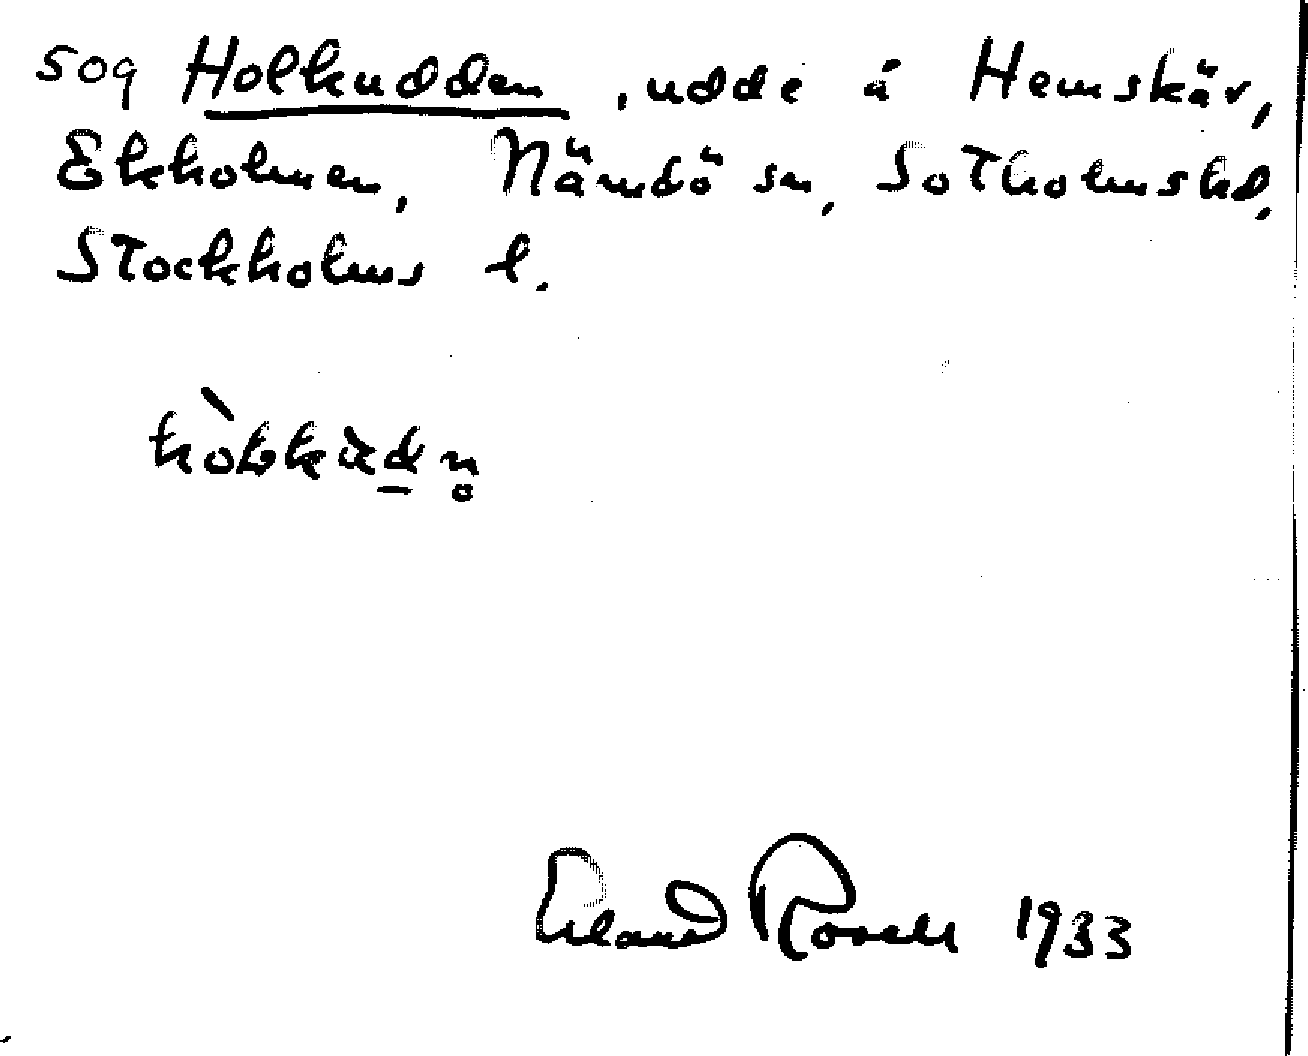 509 Holkudden, udde å Hemskär,
Ekholmen, Nämdö sn, Sotholms hd,
Stockholms l.
Erland Rosell 1933